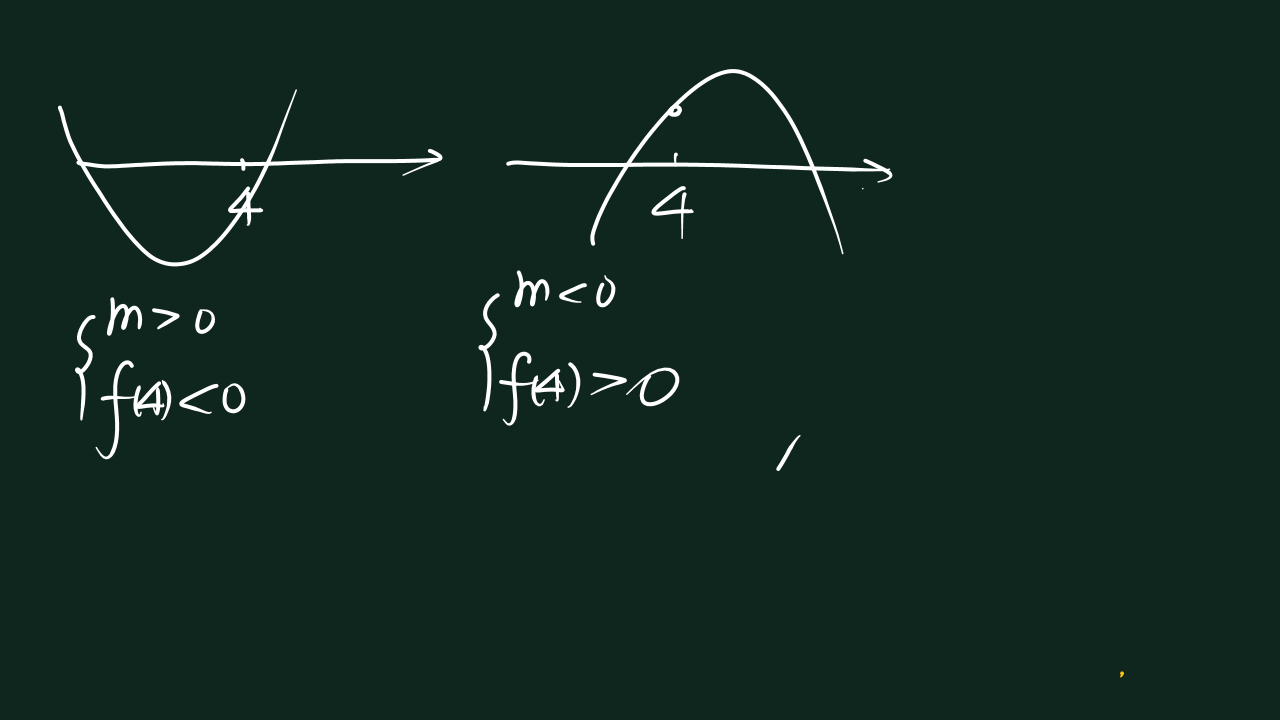 4
4
m > 0
f(4) < 0
m < 0
f(4) > 0